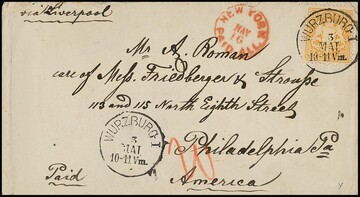 via Liverpool
NEW YORK
MAY
6
PAID ALL
WÜRZBURG I
3
MAI
10-11 Vm.
Mr A. Roman
care of Mess. Friedberger & Strouse
113 and 115 North Eighth Street
Philadelphia Pa
America
WÜRZBURG I
3
MAI
10-11 Vm.
Paid